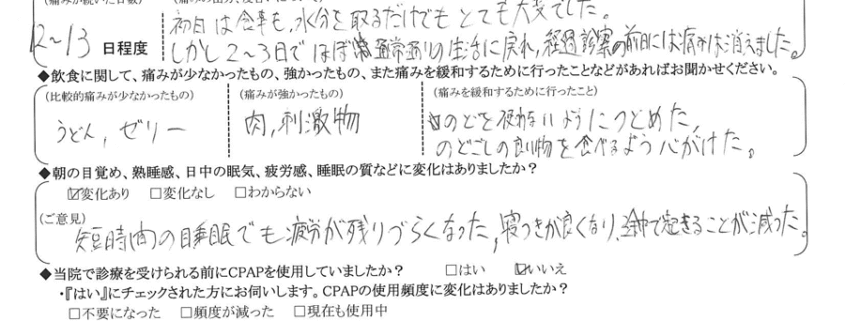 (痛みが続いた日数)
12~13 日程度
初日は食事も、水分を取るだけでもとても大変でした。
しかし2~3日でほぼ通常通りの生活に戻れ、経過診察の前日には痛みは消えました。
◆飲食に関して、痛みが少なかったもの、強かったもの、また痛みを緩和するために行ったことなどがあればお聞かせください。
(比較的痛みが少なかったもの)
うどん、ゼリー
(痛みが強かったもの)
肉、刺激物
(痛みを緩和するために行ったこと)
のどを使わないようにつとめた。
のどごしの良い物を食べるよう心がけた。
◆朝の目覚め、熟睡感、日中の眠気、疲労感、睡眠の質などに変化はありましたか?
☑変化あり □変化なし □わからない
(ご意見)
短時間の睡眠でも疲労が残りづらくなった、寝つきが良くなり、途中で起きることが減った。
◆当院で診療を受けられる前にCPAPを使用していましたか? □はい ☑いいえ
・『はい』にチェックされた方にお伺いします。CPAPの使用頻度に変化はありましたか?
□不要になった □頻度が減った □現在も使用中